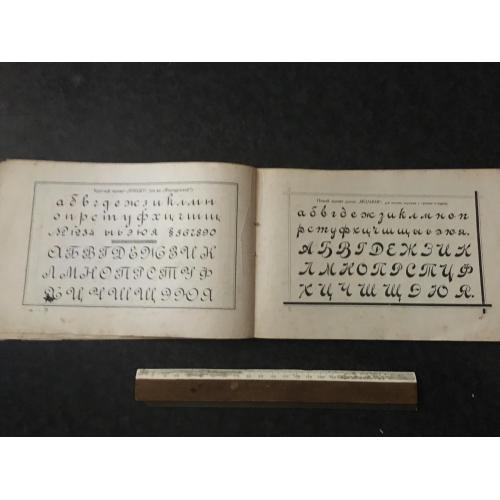 а б в г д е ж з и к л м н
о п р с т у ф х ц ч ш щ
№ 1234 ы ь э ю я 567890
А Б В Г Д Е Ж З И К
Л М Н О П Р С Т У Ф
Х Ц Ч Ш Щ Э Ю Я
а б в г д е ж з и к л м н о п
р с т у ф х ц ч ш щ ы ь э ю я.
А Б В Г Д Е Ж З И К
Л М Н О П Р С Т У Ф
Х Ц Ч Ш Щ Э Ю Я.